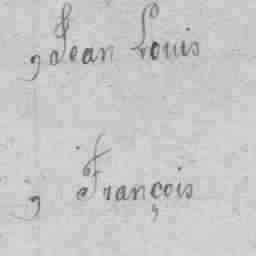 , Jean Louis
, François